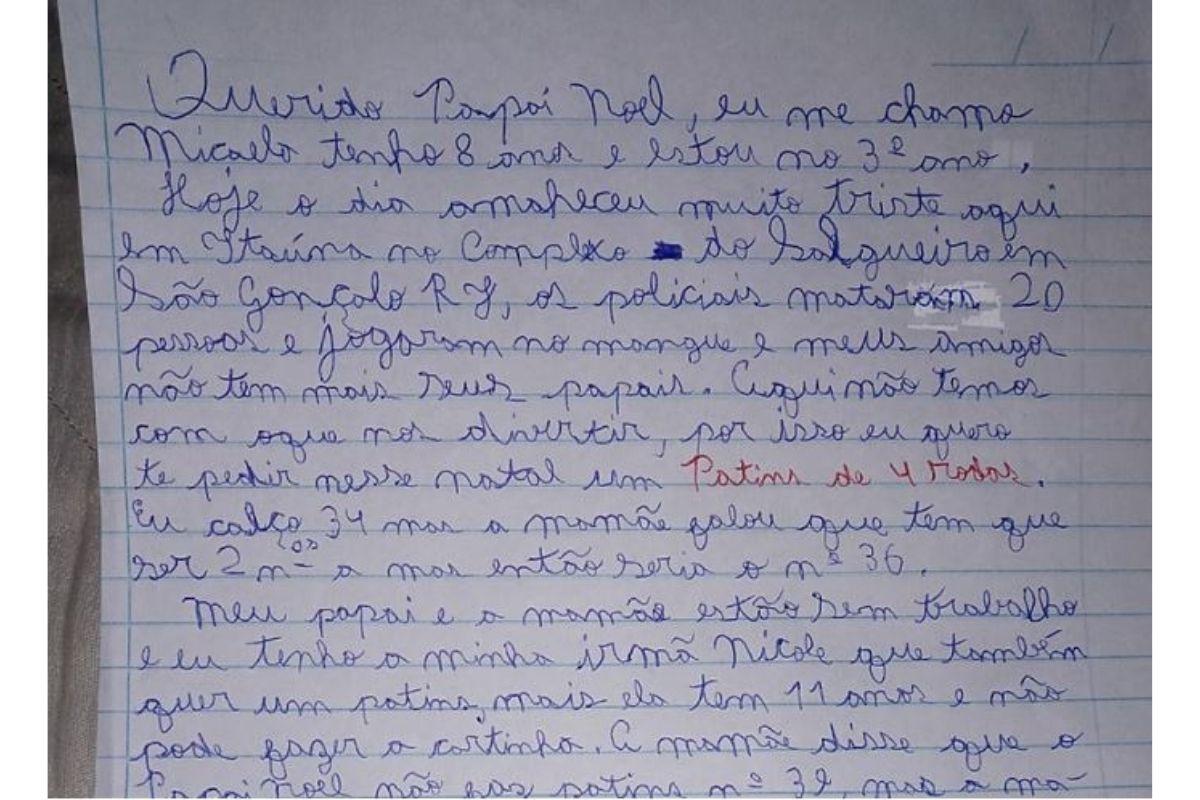 Querido Papai Noel, eu me chamo
Micaela tenho 8 anos e estou no 3º ano.
Hoje o dia amanheceu muito triste aqui
em Itaúna no Complexo do Salgueiro em
São Gonçalo RJ, os policiais mataram 20
pessoas e jogaram no mangue e meus amigos
não tem mais seus papais. Aqui não temos
com oque nos divertir, por isso eu quero
te pedir nesse natal um Patins de 4 rodas.
Eu calço 34 mas a mamãe falou que tem que
ser 2 nºs a mas então seria o nº 36.
Meu papai e a mamãe estão sem trabalho
e eu tenho a minha irmã Nicole que também
quer um patins, mais ela tem 11 anos e não
pode fazer a cartinha. A mamãe disse que o
Papai Noel não patins nº 39, mas a ma-